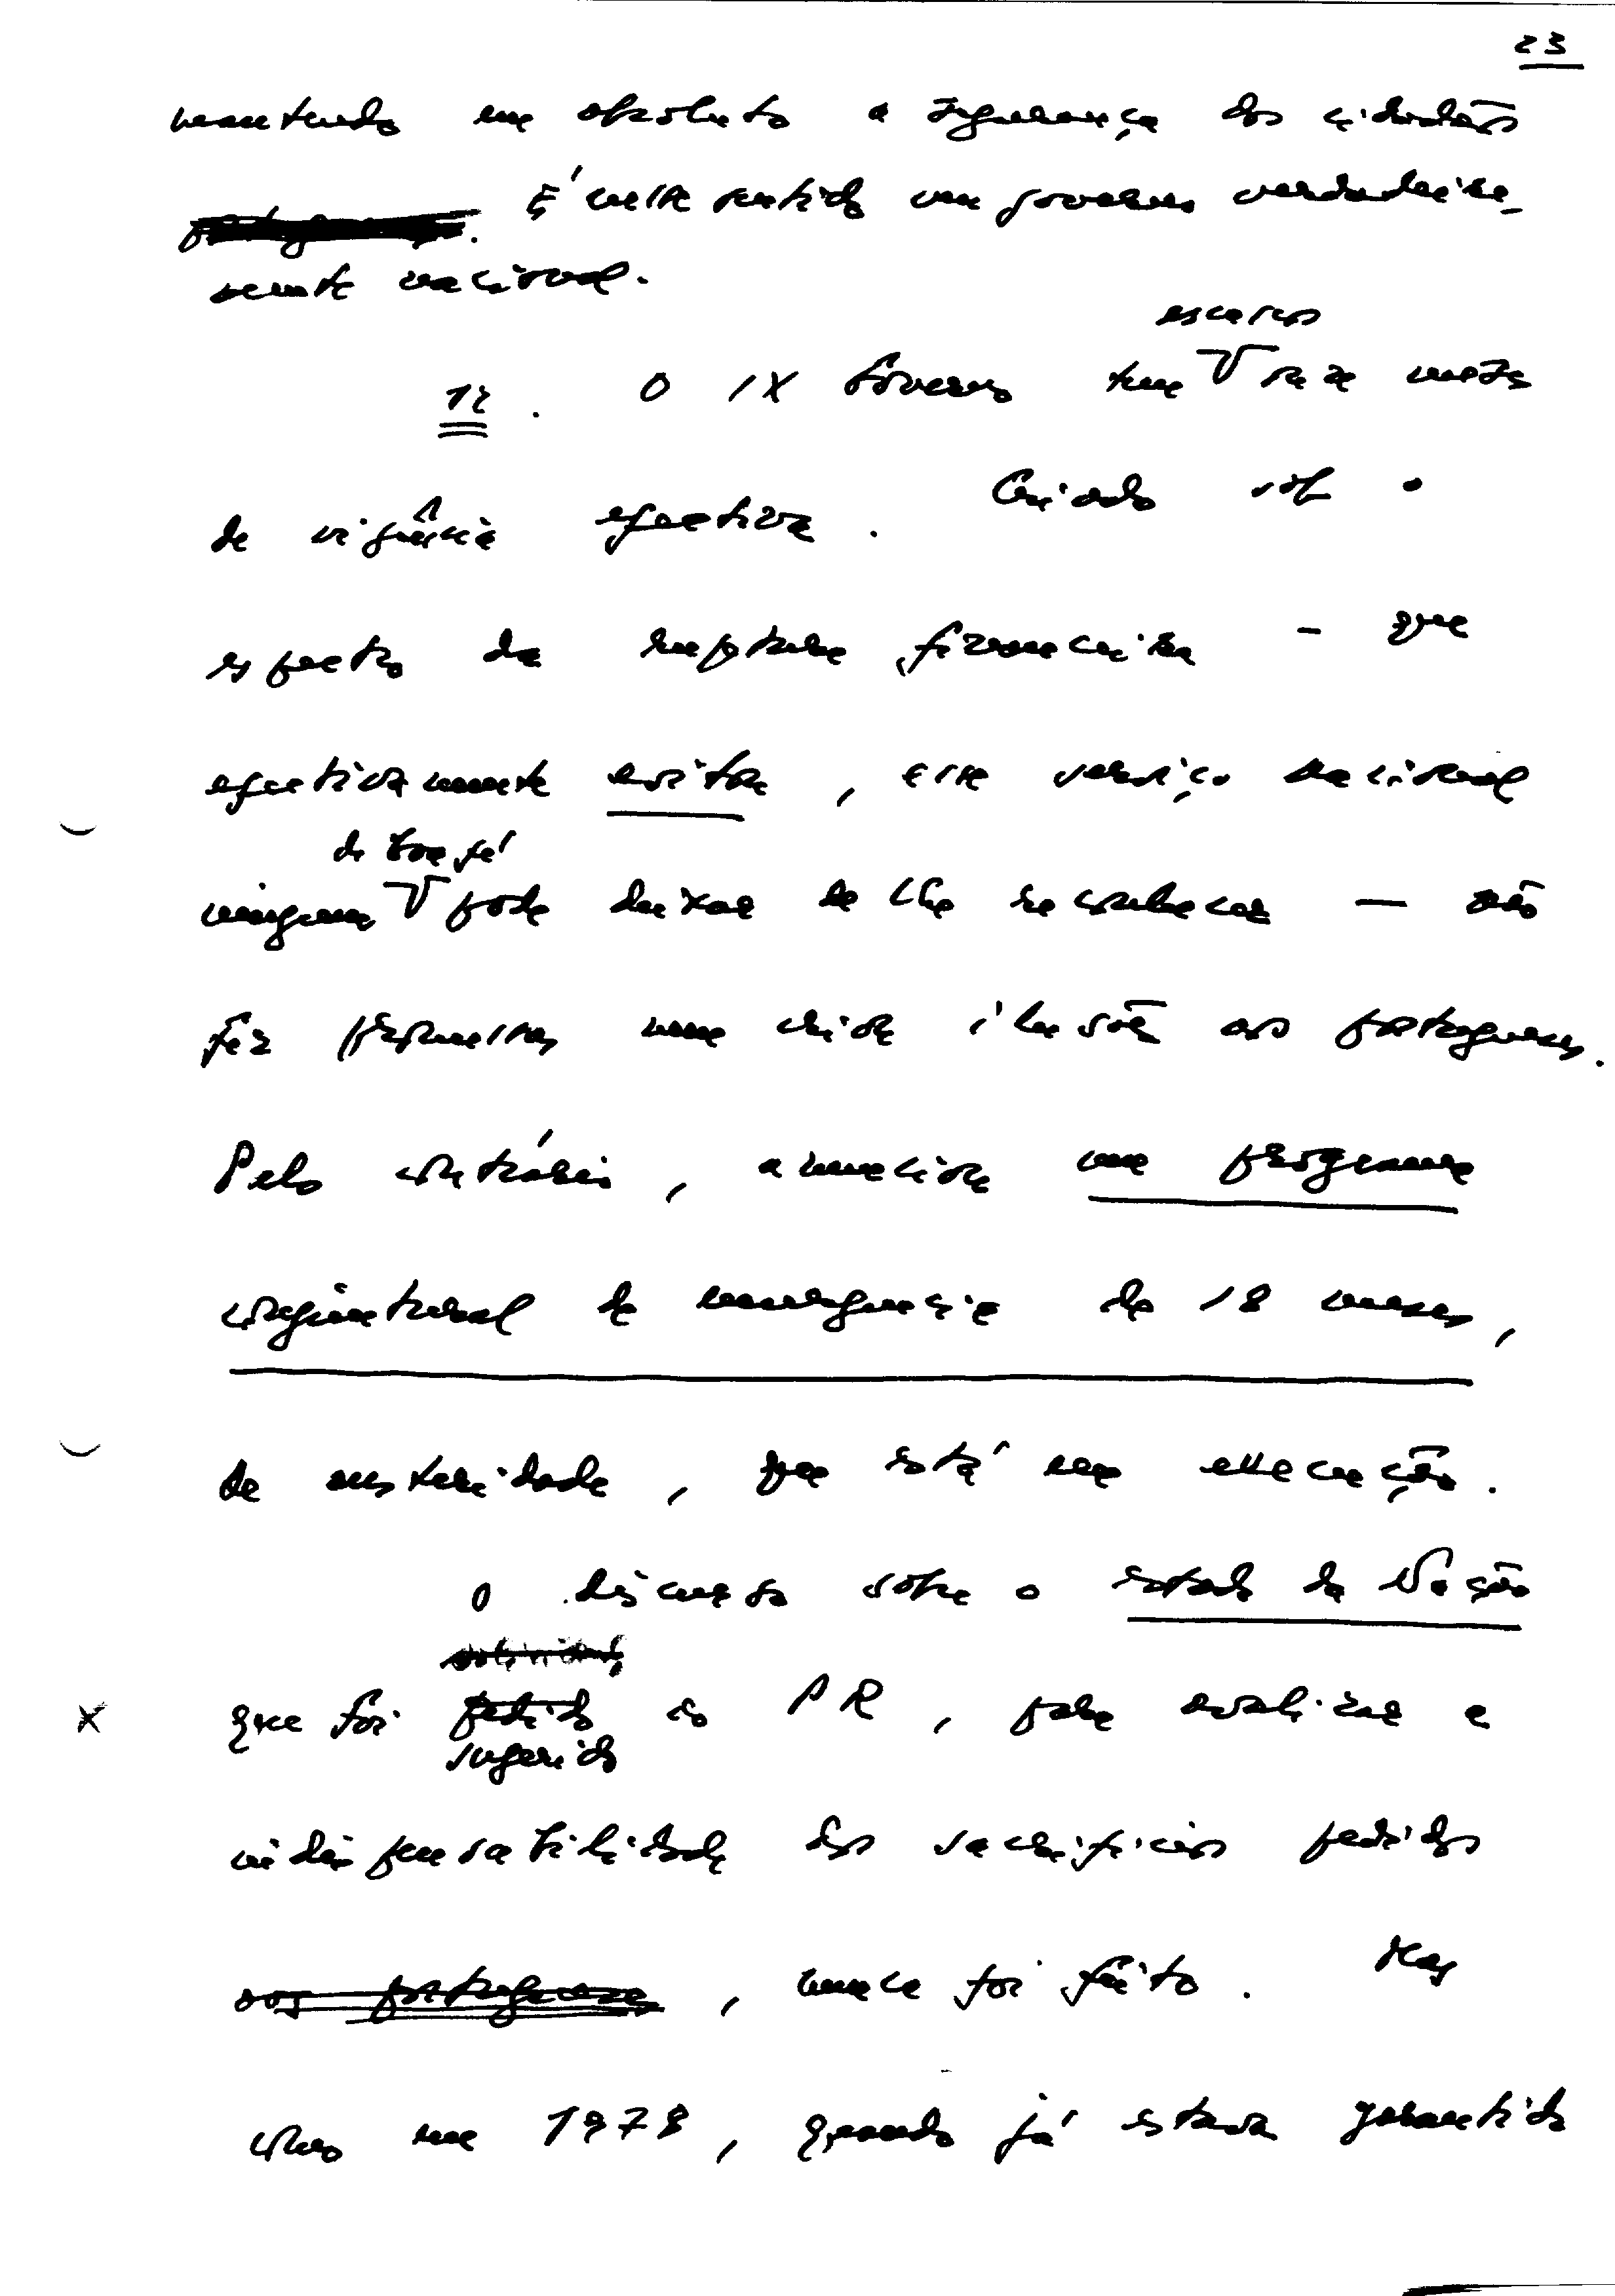 23
mantendo em absoluto a segurança dos cidadãos
portugueses. É neste sentido um governo verdadeira-
mente nacional.
escassos
12. O IX Governo tem seis meses
de vigência efectiva. Criado sob o
espectro da ruptura financeira - que
efectivamente evitou, esse serviço nacional
de boa fé
ninguém pode deixar de lhe reconhecer — não
fez promessas nem criou ilusões aos portugueses.
Pelo contrário, anunciou um programa
conjuntural de emergência de 18 meses,
de austeridade, que está em execução.
O discurso sobre o estado da Nação
que foi pedido ao PR, para avalizar a
sugerido
indispensabilidade dos sacrifícios pedidos
aos portugueses, nunca foi feito. Mas
como em 1978, quando já estava garantido